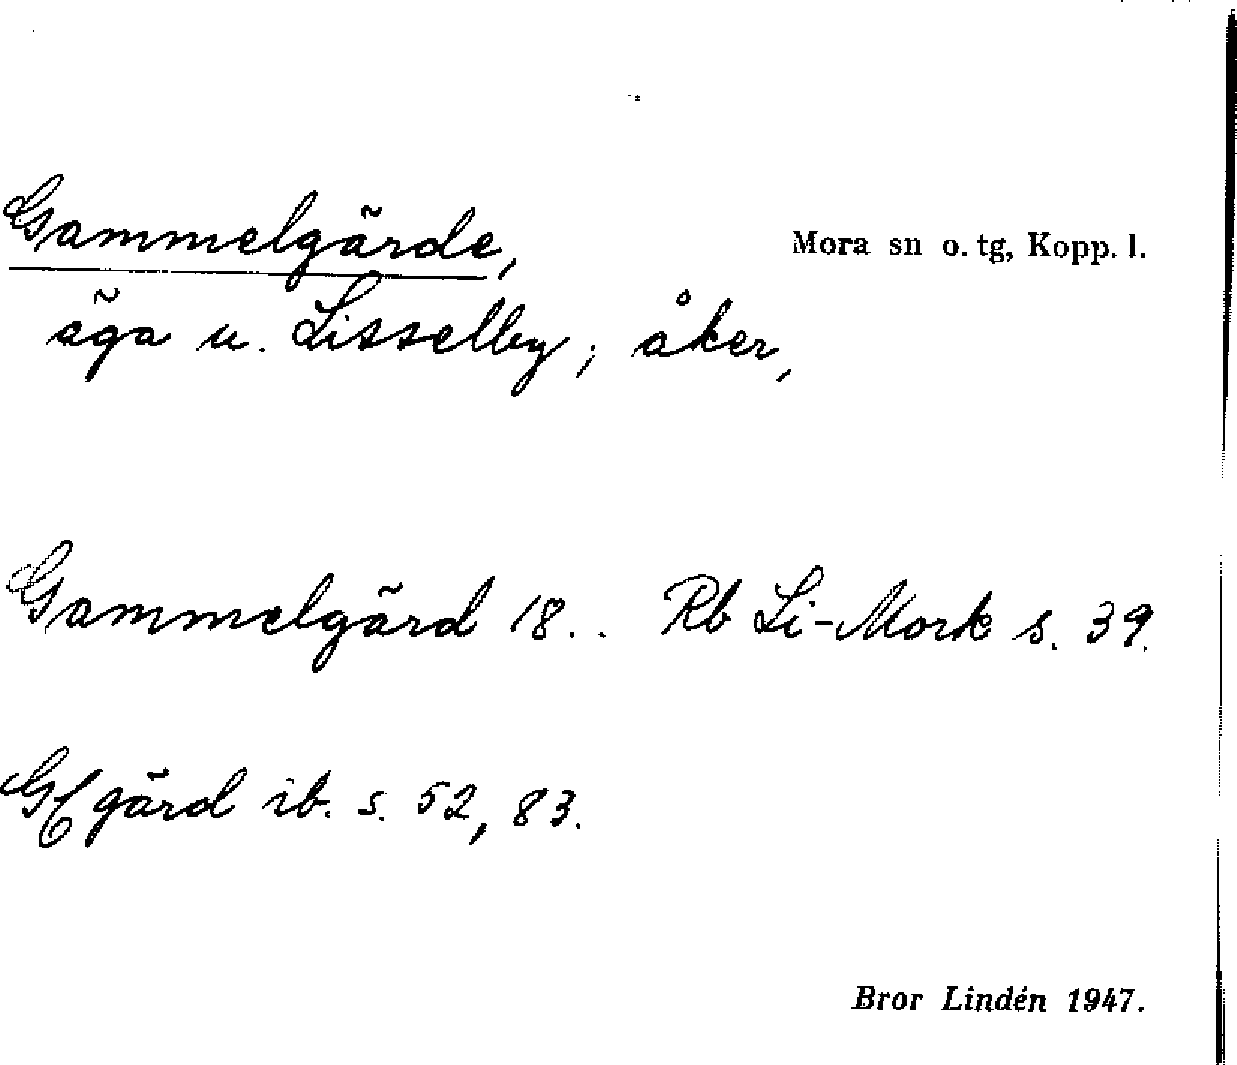 Gammelgärde,
Mora sn o. tg, Kopp. l.
äga u. Lisselby; åker,
Gammelgärd 18.. Rb Li-Mork s. 39.
G/gärd ib. s. 52, 83.
Bror Lindén 1947.